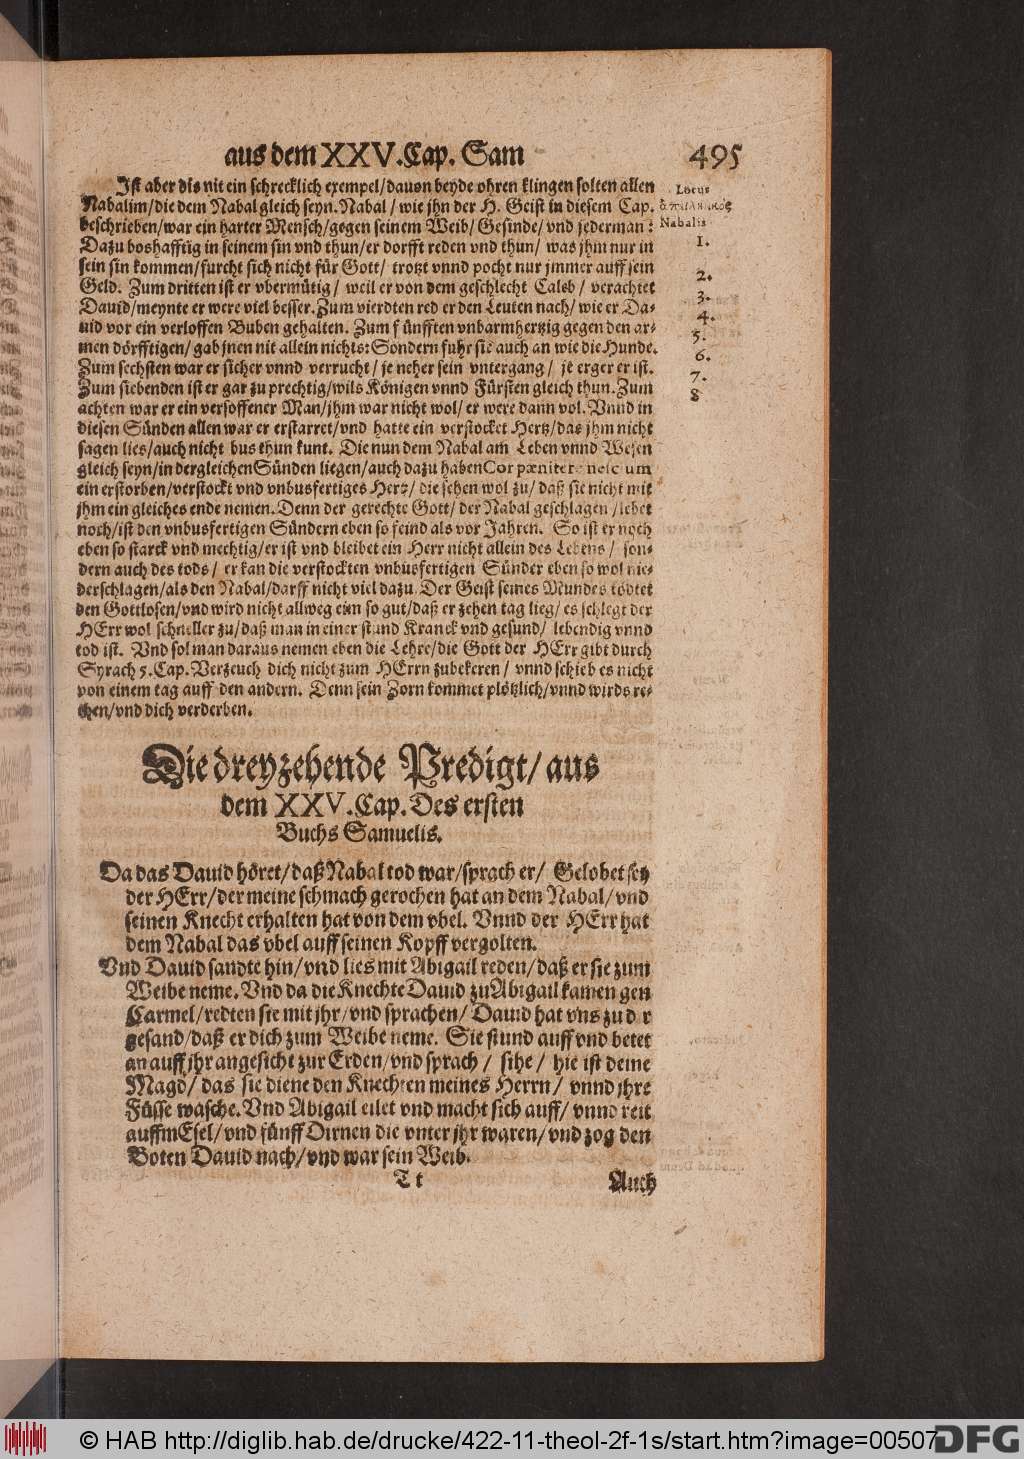 aus dem XXV. Cap. Sam
495
Ist aber dis nit ein schrecklich exempel/dauon beyde ohren klingen solten allen
Nabalim/die dem Nabal gleich seyn. Nabal/ wie jhn der H. Geist in diesem Cap.
beschrieben/war ein harter Mensch/gegen seinem Weib/ Gesinde/ vnd jederman:
Dazu boshafftig in seinem sin vnd thun/er dorfft reden vnd thun/ was jhm nur in
sein sin kommen/furcht sich nicht für Gott/ trotzt vnnd pocht nur jmmer auff sein
Geld. Zum dritten ist er vbermütig/ weil er von dem geschlecht Caleb/ verachtet
Dauid/meynte er were viel besser. Zum vierdten red er den Leuten nach/ wie er Da-
uid vor ein verloffen Buben gehalten. Zum fünfften vnbarmhertzig gegen den ar-
men dörfftigen/ gab jnen nit allein nichts: Sondern fuhr sie auch an wie die Hunde.
Zum sechsten war er sicher vnnd verrucht/ je neher sein vntergang/ je erger er ist.
Zum siebenden ist er gar zu prechtig/wils Königen vnnd Fürsten gleich thun. Zum
achten war er ein versoffener Man/jhm war nicht wol/ er were dann vol. Vnnd in
diesen Sünden allen war er erstarret/vnd hatte ein verstocket Hertz/das jhm nicht
sagen lies/auch nicht bus thun kunt. Die nun dem Nabal am Leben vnnd Wesen
gleich seyn/in dergleichen Sünden liegen/auch dazu haben Cor pœnitere nescium
ein erstorben/verstockt vnd vnbusfertiges Hertz/ die sehen wol zu/ daß sie nicht mit
jhm ein gleiches ende nemen. Denn der gerechte Gott/ der Nabal geschlagen/lebet
noch/ist den vnbusfertigen Sündern eben so feind als vor Jahren. So ist er noch
eben so starck vnd mechtig/er ist vnd bleibet ein Herr nicht allein des Lebens/ son-
dern auch des tods/ er kan die verstockten vnbusfertigen Sünder eben so wol nie-
derschlagen/als den Nabal/darff nicht viel dazu. Der Geist seines Mundes tödtet
den Gottlosen/vnd wird nicht allweg eim so gut/daß er zehen tag lieg/ es schlegt der
HErr wol schneller zu/daß man in einer stund Kranck vnd gesund/ lebendig vnnd
tod ist. Vnd sol man daraus nemen eben die Lehre/die Gott der HErr gibt durch
Syrach 5. Cap. Verzeuch dich nicht zum HErrn zubekeren/ vnnd schieb es nicht
von einem tag auff den andern. Denn sein Zorn kommet plötzlich/vnnd wirds re-
chen/vnd dich verderben.
Locus
Nabalis
1.
2.
3.
4.
5.
6.
7.
8
Die dreyzehende Predigt/ aus
dem XXV. Cap. Des ersten
Buchs Samuelis.
Da das Dauid höret/daß Nabal tod war/sprach er/ Gelobet sey
der HErr/der meine schmach gerochen hat an dem Nabal/ vnd
seinen Knecht erhalten hat von dem vbel. Vnnd der HErr hat
dem Nabal das vbel auff seinen Kopff vergolten.
Vnd Dauid sandte hin/vnd lies mit Abigail reden/daß er sie zum
Weibe neme. Vnd da die Knechte Dauid zu Abigail kamen gen
Carmel/redten sie mit jhr/vnd sprachen/ Dauid hat vns zu dir
gesand/daß er dich zum Weibe neme. Sie stund auff vnd betet
an auff jhr angesicht zur Erden/vnd sprach/ sihe/ hie ist deine
Magd/ das sie diene den Knechten meines Herrn/ vnnd jhre
Füsse wasche. Vnd Abigail eilet vnd macht sich auff/ vnnd reit
auffm Esel/vnd fünff Dirnen die vnter jhr waren/vnd zog den
Boten Dauid nach/vnd war sein Weib.
Tt
Auch
© HAB http://diglib.hab.de/drucke/422-11-theol-2f-1s/start.htm?image=00507
DFG